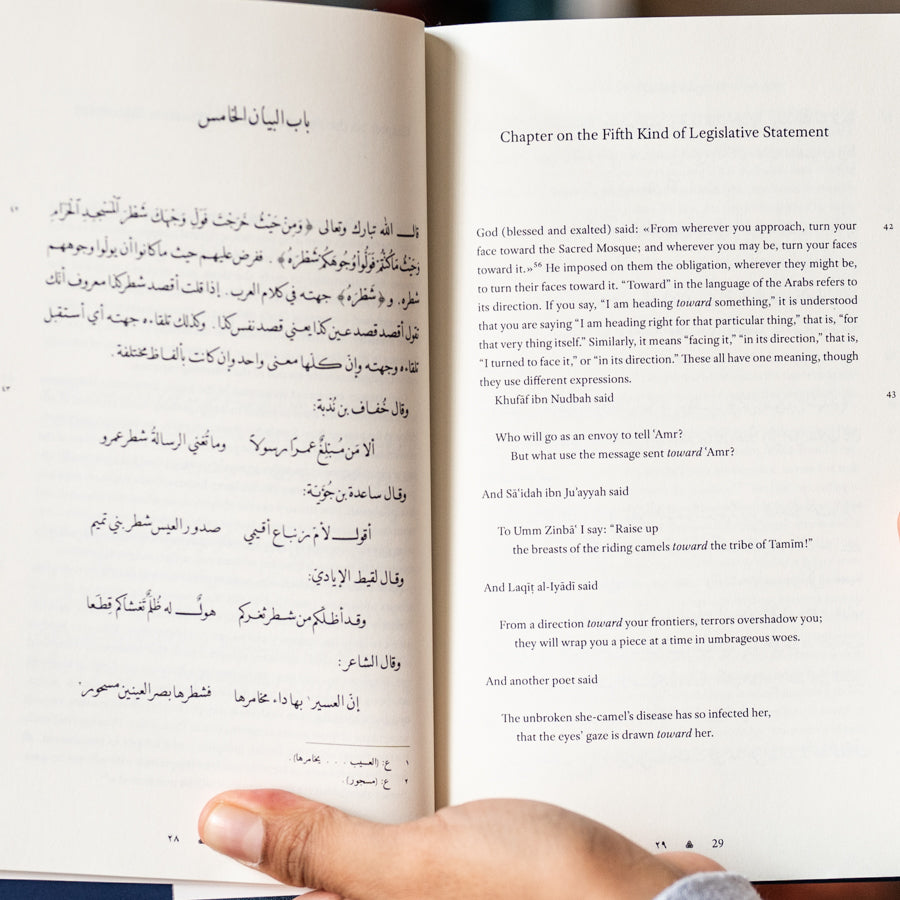 باب البيان الخامس
٤٢
قال الله تبارك وتعالى ﴿وَمِنْ حَيْثُ خَرَجْتَ فَوَلِّ وَجْهَكَ شَطْرَ ٱلْمَسْجِدِ ٱلْحَرَامِ
وَحَيْثُ مَا كُنتُمْ فَوَلُّوا۟ وُجُوهَكُمْ شَطْرَهُ﴾. ففرض عليهم حيث ما كانوا أن يولوا وجوههم
شطره. و﴿شَطْرَهُ﴾ جهته في كلام العرب. إذا قلت أقصد شطر كذا معروف أنك
تقول أقصد قصد عين كذا يعني قصد نفس كذا. وكذلك تلقاءه جهته أي أستقبل
تلقاءه وجهته وإنّ كلها معنى واحد وإن كانت بألفاظ مختلفة.
٤٣
وقال خُفاف بن نُدْبة:
ألا مَن مُبْلِغٌ عمرًا رسولاً وما تُغني الرسالةُ شطر عمرو
وقال ساعدة بن جُؤيّة:
أقول لأمّ زنباع أقيمي صدور العيس شطر بني تميم
وقال لقيط الإياديّ:
وقد أظلّكم من شطر ثغركم هولٌ له ظُلَمٌ تغشاكم قِطَعا
وقال الشاعر:
إنّ العسير١ بها داء مخامرها فشطرها بصر العينين مسحور٢
١ ع: (العسيب . . . يخامرها).
٢ ع: (مسجور).
٢٨
Chapter on the Fifth Kind of Legislative Statement
God (blessed and exalted) said: «From wherever you approach, turn your 42
face toward the Sacred Mosque; and wherever you may be, turn your faces
toward it.»56 He imposed on them the obligation, wherever they might be,
to turn their faces toward it. “Toward” in the language of the Arabs refers to
its direction. If you say, “I am heading toward something,” it is understood
that you are saying “I am heading right for that particular thing,” that is, “for
that very thing itself.” Similarly, it means “facing it,” “in its direction,” that is,
“I turned to face it,” or “in its direction.” These all have one meaning, though
they use different expressions.
Khufāf ibn Nudbah said 43
Who will go as an envoy to tell ʿAmr?
But what use the message sent toward ʿAmr?
And Sāʿidah ibn Juʾayyah said
To Umm Zinbāʿ I say: “Raise up
the breasts of the riding camels toward the tribe of Tamīm!”
And Laqīṭ al-Iyādī said
From a direction toward your frontiers, terrors overshadow you;
they will wrap you a piece at a time in umbrageous woes.
And another poet said
The unbroken she-camel’s disease has so infected her,
that the eyes’ gaze is drawn toward her.
٢٩ 29